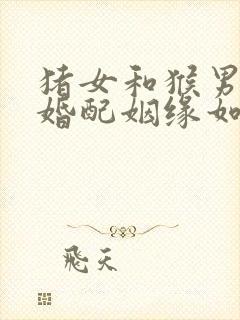 猪女和猴男
婚配姻缘如
飛天